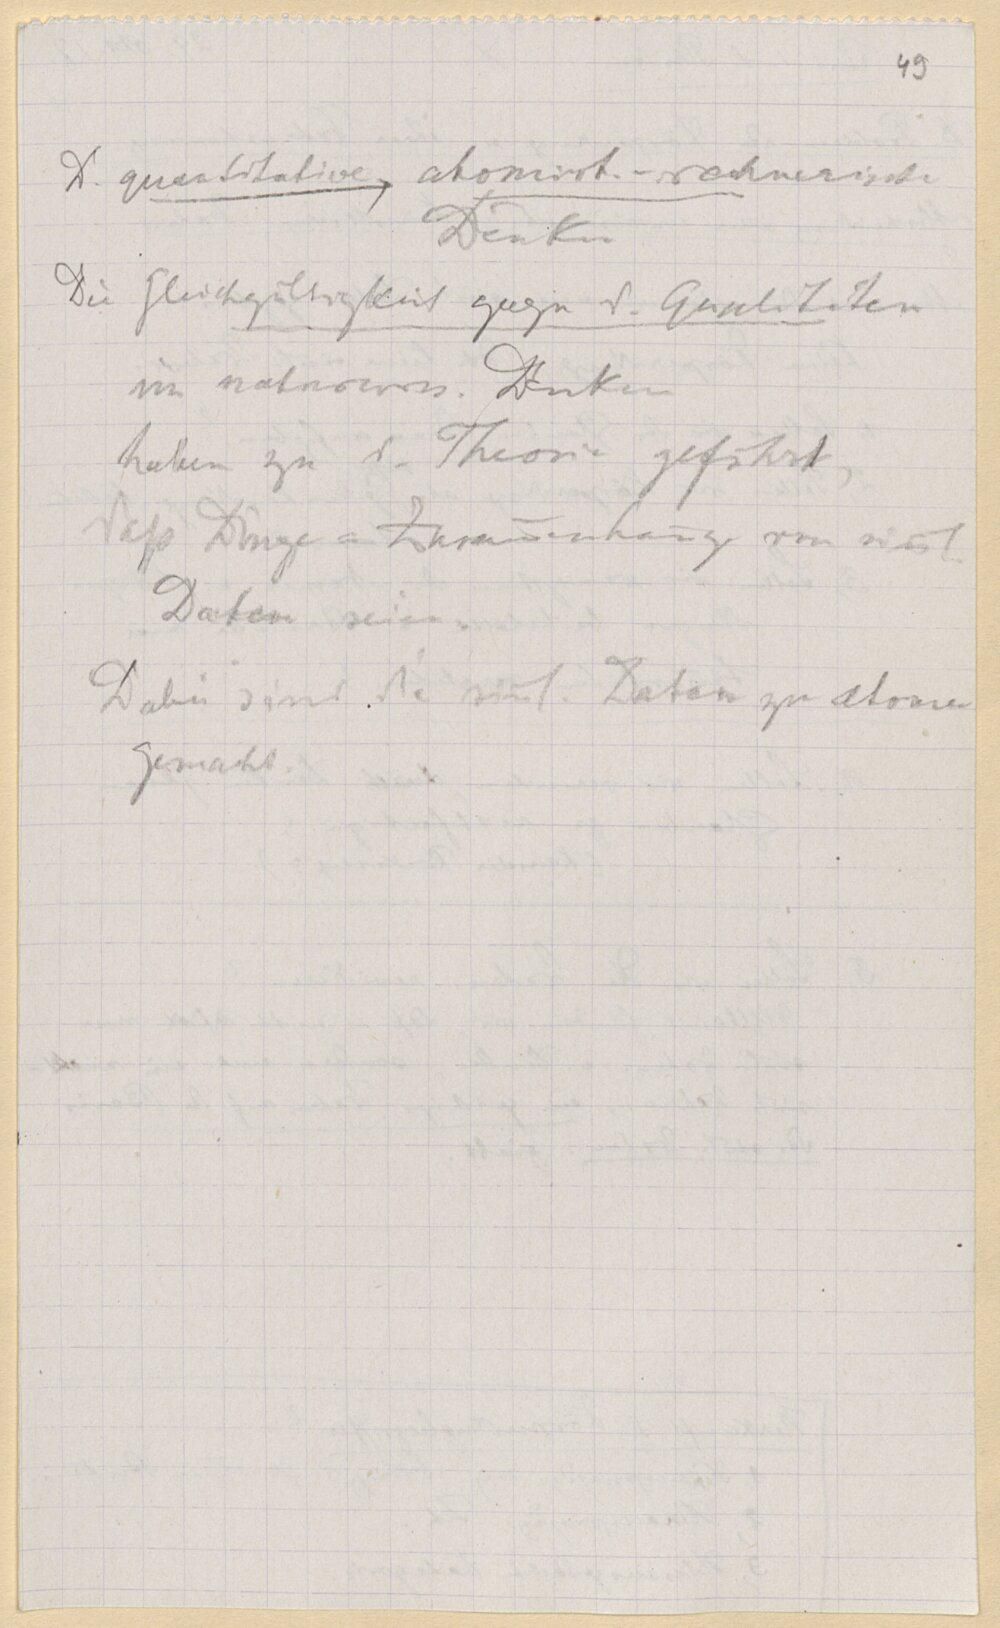 49
D. quantitative, atomist.-rechnerische
Denken
Die Gleichgültigkeit gegen d. Qualitäten
im naturwiss. Denken
haben zu d. Theorie geführt,
daß Dinge = Zusam̅enhänge von sinnl.
Daten seien.
Dabei sind die sinnl. Daten zu Atomen
gemacht.